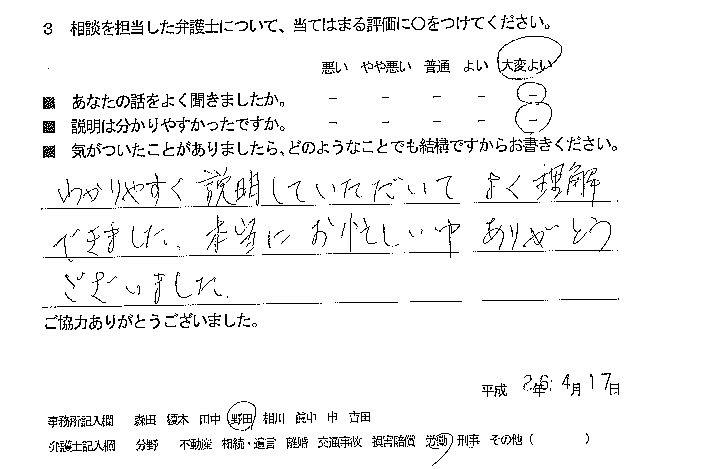 3 相談を担当した弁護士について、当てはまる評価に○をつけてください。
悪い やや悪い 普通 よい 大変よい
■ あなたの話をよく聞きましたか。 － － － － －
■ 説明は分かりやすかったですか。 － － － － －
■ 気がついたことがありましたら、どのようなことでも結構ですからお書きください。
わかりやすく説明していただいて よく理解
できました。本当にお忙しい中 ありがとう
ございました。
ご協力ありがとうございました。
平成 26年 4月 17日
事務所記入欄 森田 榎本 田中 野田 相川 田中 申 吉田
弁護士記入欄 分野 不動産 相続・遺言 離婚 交通事故 損害賠償 労働 刑事 その他 ( )